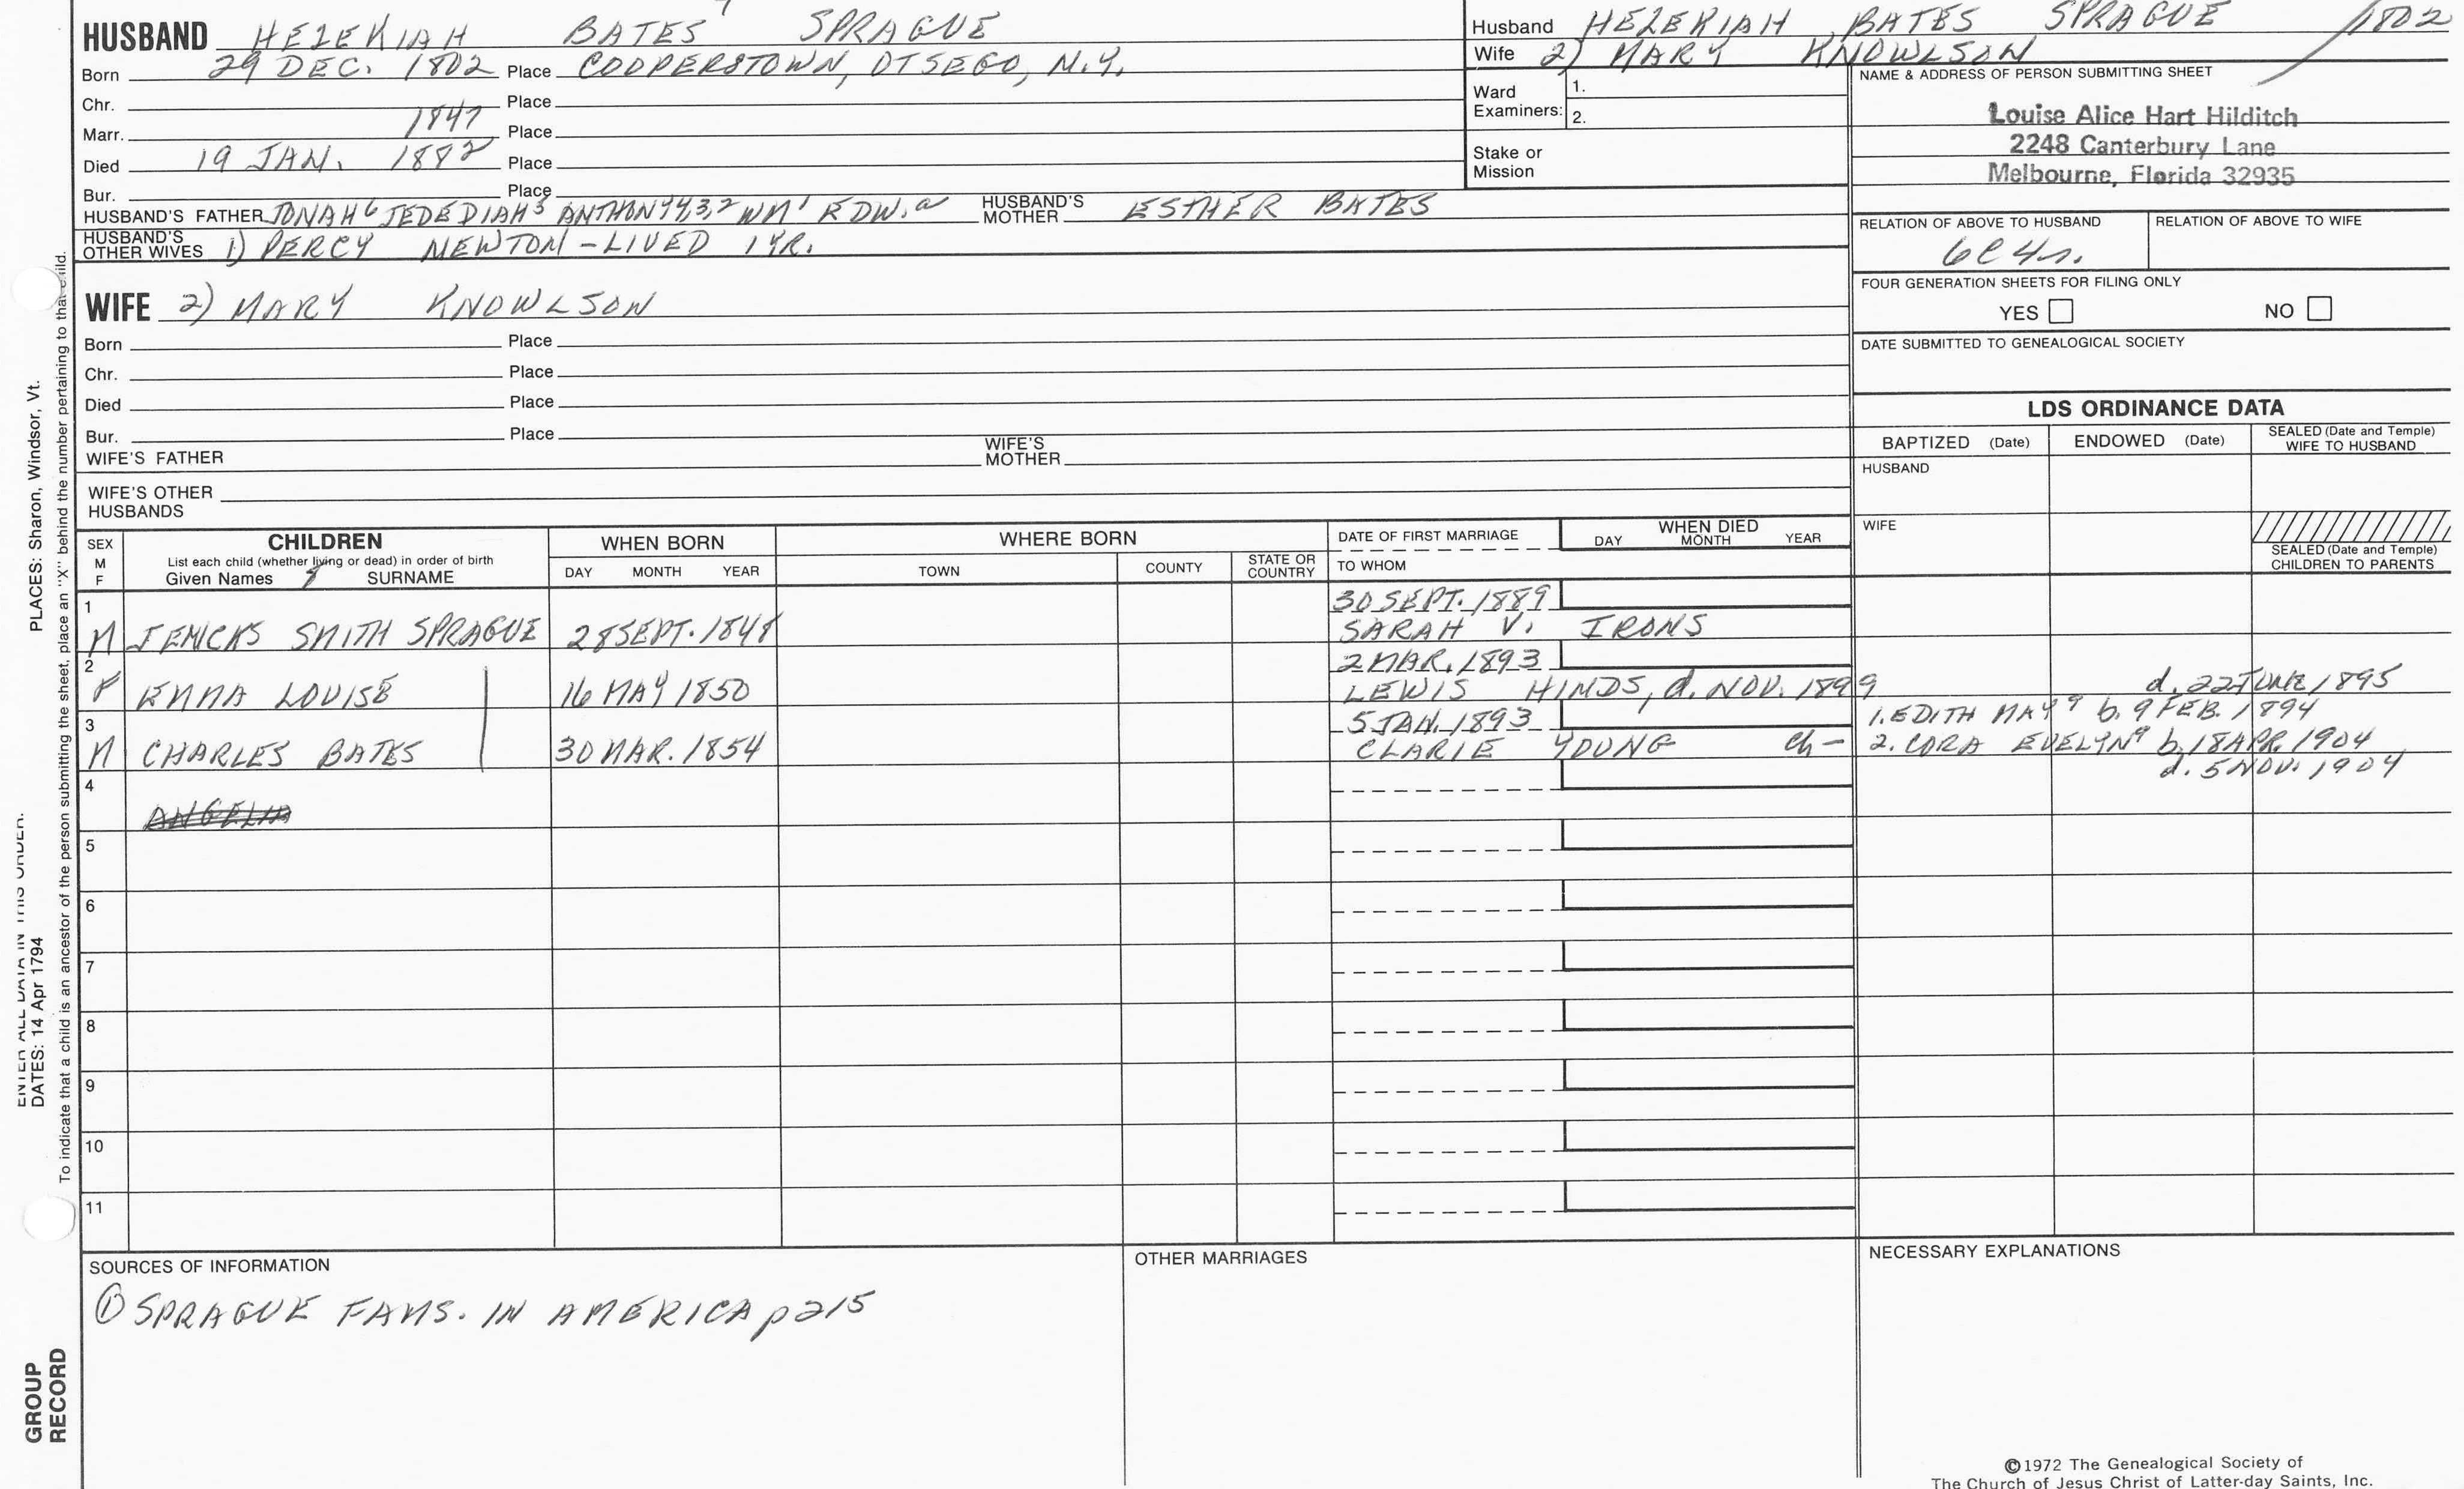 HUSBAND HEZEKIAH BATES 7 SPRAGUE
Born 29 DEC. 1802 Place COOPERSTOWN, OTSEGO, N.Y.
Chr. Place
Marr. 1847 Place
Died 19 JAN. 1882 Place
Bur. Place
HUSBAND'S FATHER JONAH6 JEDEDIAH5 ANTHONY4,3,2 WM1 EDW.a HUSBAND'S MOTHER ESTHER BATES
HUSBAND'S OTHER WIVES 1) PERCY NEWTON - LIVED 1 YR.
Husband HEZEKIAH BATES SPRAGUE 1802
Wife 2) MARY KNOWLSON
Ward Examiners: 1.
2.
Stake or Mission
NAME & ADDRESS OF PERSON SUBMITTING SHEET
Louise Alice Hart Hilditch
2248 Canterbury Lane
Melbourne, Florida 32935
RELATION OF ABOVE TO HUSBAND RELATION OF ABOVE TO WIFE
6C4r.
FOUR GENERATION SHEETS FOR FILING ONLY
YES NO
DATE SUBMITTED TO GENEALOGICAL SOCIETY
WIFE 2) MARY KNOWLSON
Born Place
Chr. Place
Died Place
Bur. Place
WIFE'S FATHER WIFE'S MOTHER
WIFE'S OTHER HUSBANDS
LDS ORDINANCE DATA
BAPTIZED (Date) ENDOWED (Date) SEALED (Date and Temple) WIFE TO HUSBAND
HUSBAND
WIFE
SEALED (Date and Temple) CHILDREN TO PARENTS
SEX M F CHILDREN WHEN BORN WHERE BORN DATE OF FIRST MARRIAGE WHEN DIED
List each child (whether living or dead) in order of birth DAY MONTH YEAR
Given Names 8 SURNAME DAY MONTH YEAR TOWN COUNTY STATE OR COUNTRY TO WHOM
1 30 SEPT. 1889
M JENICKS SMITH SPRAGUE 28 SEPT. 1848 SARAH V. IRONS
2 2 MAR. 1893
F EMMA LOUISE 16 MAY 1850 LEWIS HINDS, d. NOV. 1899 d. 22 JUNE 1895
3 5 JAN. 1893 1. EDITH MAY9 b. 9 FEB. 1894
M CHARLES BATES 30 MAR. 1854 CLARIE YOUNG Ch- 2. CORA EVELYN9 b. 18 APR. 1904
4 d. 5 NOV. 1904
ANGELIA
5
6
7
8
9
10
11
SOURCES OF INFORMATION
① SPRAGUE FAMS. IN AMERICA p 215
OTHER MARRIAGES
NECESSARY EXPLANATIONS
©1972 The Genealogical Society of
The Church of Jesus Christ of Latter-day Saints, Inc.
ENTER ALL DATA IN THIS ORDER.
DATES: 14 Apr 1794
PLACES: Sharon, Windsor, Vt.
To indicate that a child is an ancestor of the person submitting the sheet, place an "X" behind the number pertaining to that child.
GROUP RECORD